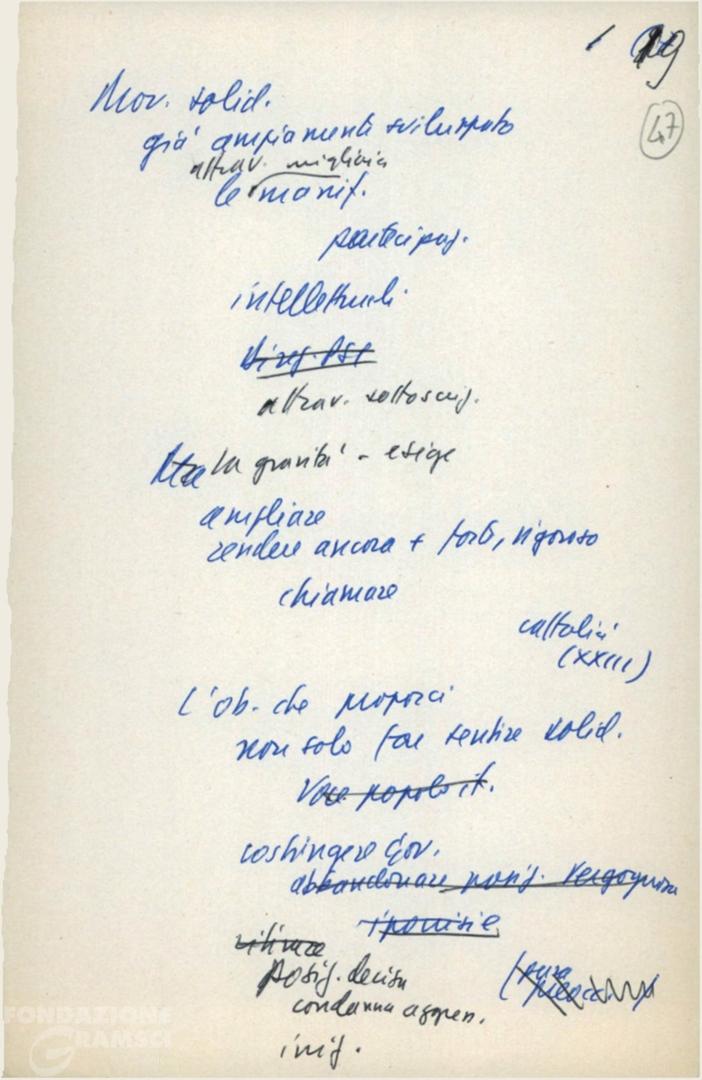 19
47
Mov. solid.
già ampiamente sviluppato
attrav. migliaia
le manif.
partecipaz.
intellettuali
Direz. PSI
attrav. sottoscriz.
Ma la gravità - esige
ampliare
rendere ancora + forte, vigoroso
chiamare
cattolici
(XXIII)
L'ob. che proporci
non solo far sentire solid.
Voce popolo it.
costringere Gov.
abbandonare posiz. vergognosa
ipocrisie
ritirare
posiz. decisa
condanna aggres.
iniz.
FONDAZIONE
GRAMSCI